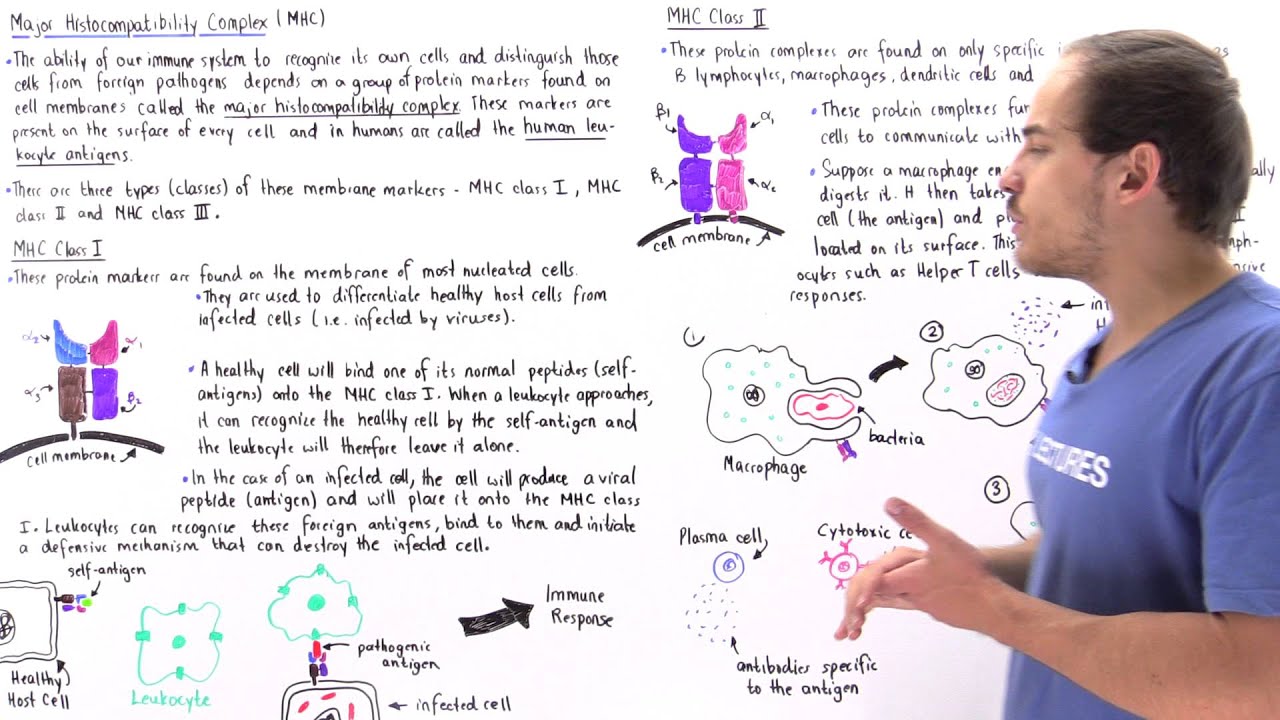 Major Histocompatibility Complex (MHC)
• The ability of our immune system to recognize its own cells and distinguish those
cells from foreign pathogens depends on a group of protein markers found on
cell membranes called the major histocompatibility complex. These markers are
present on the surface of every cell and in humans are called the human leu-
kocyte antigens.
• There are three types (classes) of these membrane markers - MHC class I, MHC
class II and MHC class III.
MHC Class I
• These protein markers are found on the membrane of most nucleated cells.
• They are used to differentiate healthy host cells from
infected cells (i.e. infected by viruses).
α2
α1
α3
β2
cell membrane
• A healthy cell will bind one of its normal peptides (self-
antigens) onto the MHC class I. When a leukocyte approaches,
it can recognize the healthy cell by the self-antigen and
the leukocyte will therefore leave it alone.
• In the case of an infected cell, the cell will produce a viral
peptide (antigen) and will place it onto the MHC class
I. Leukocytes can recognize these foreign antigens, bind to them and initiate
a defensive mechanism that can destroy the infected cell.
self-antigen
Healthy
Host Cell
Leukocyte
pathogenic
antigen
infected cell
Immune
Response
MHC Class II
• These protein complexes are found on only specific
B lymphocytes, macrophages, dendritic cells and
β1
α1
β2
α2
cell membrane
• These protein complexes
cells to communicate with
• Suppose a macrophage
digests it. It then takes
cell (the antigen) and
I
located on its surface. This
ocytes such as Helper T cells
responses.
1
2
bacteria
Macrophage
3
Plasma cell
Cytotoxic
antibodies specific
to the antigen
LECTURES